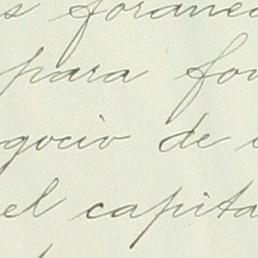 s foranec
para fon
gocio de
el capita